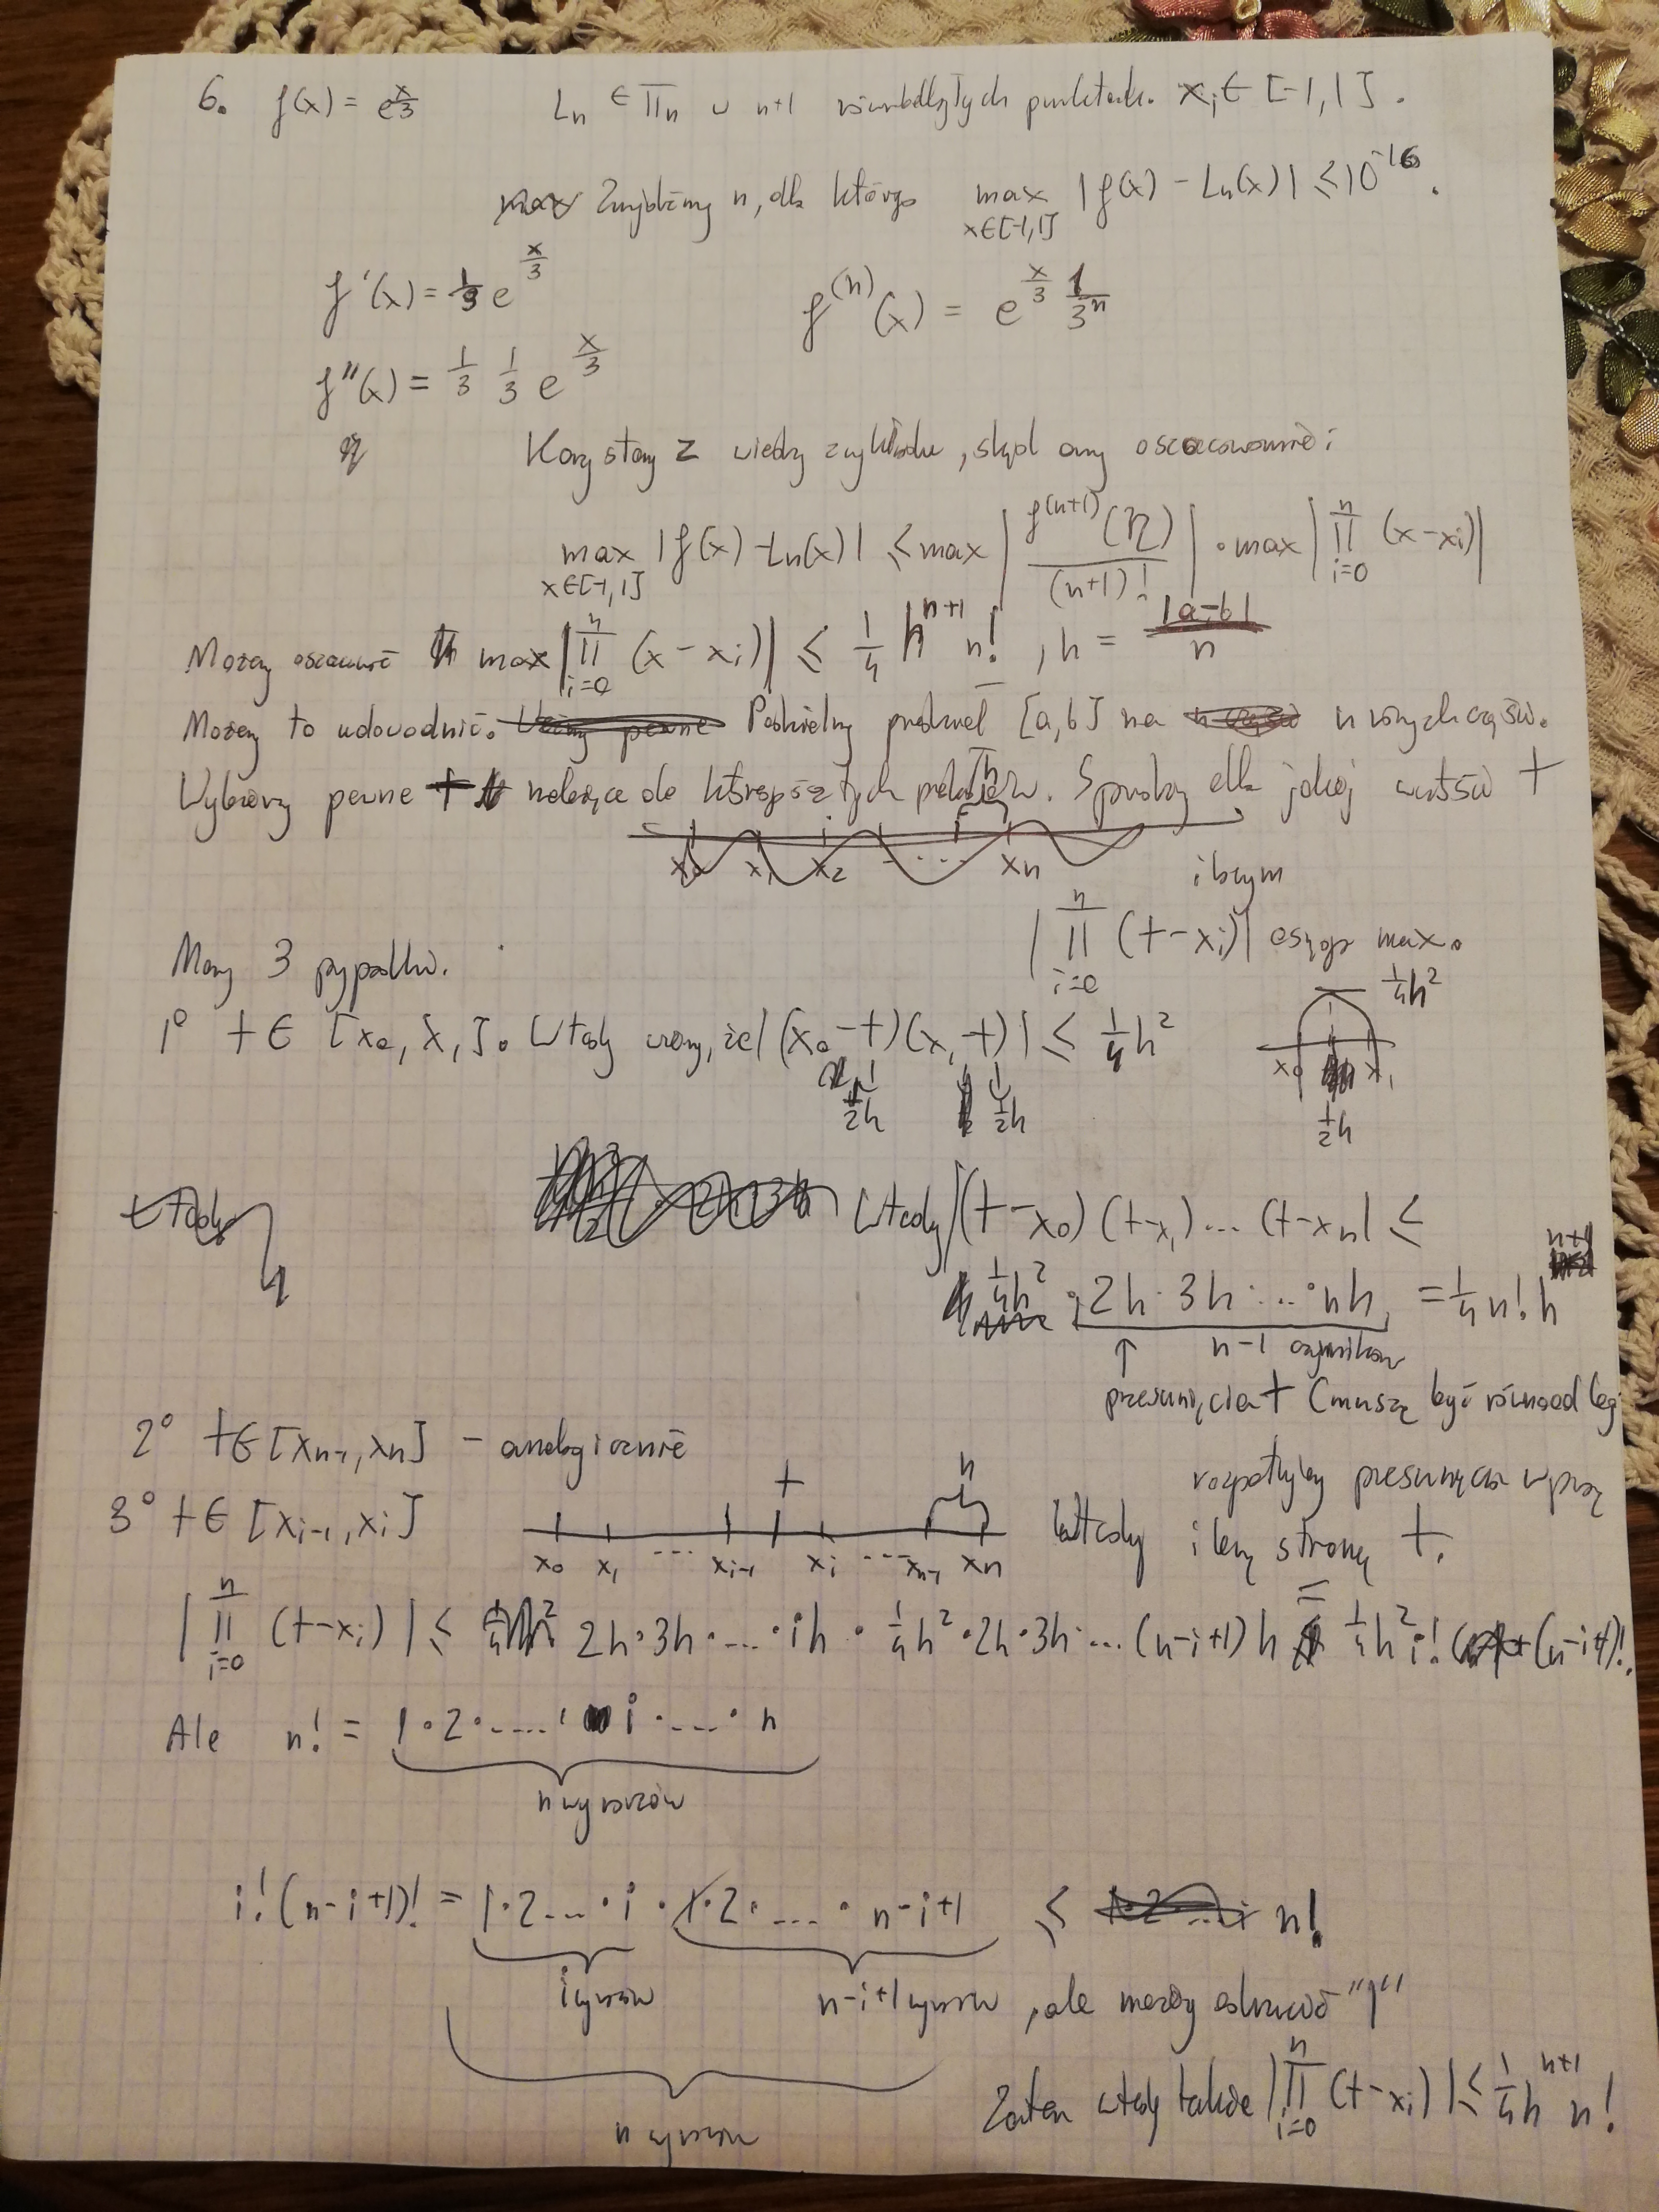 6. f(x) = e^{x/3} L_n ∈ Π_n w n+1 równoodległych punktach. x_i ∈ [-1,1].
Znajdźmy n, dla którego max_{x∈[-1,1]} |f(x) - L_n(x)| ≤ 10^{-16}.
f'(x) = 1/3 e^{x/3} f^{(n)}(x) = e^{x/3} 1/3^n
f''(x) = 1/3 1/3 e^{x/3}
Korzystamy z wiedzy z wykładu, skąd mamy oszacowanie:
max_{x∈[-1,1]} |f(x) - L_n(x)| ≤ max |f^{(n+1)}(η)/(n+1)!| · max |∏_{i=0}^{n} (x-x_i)|
Możemy oszacować max |∏_{i=0}^{n} (x-x_i)| ≤ 1/4 h^{n+1} n!, h = |a-b|/n
Możemy to udowodnić. Podzielmy przedział [a,b] na n równych części.
Wybierzmy pewne t należące do któregoś z tych przedziałów. Sprawdzmy dla jakiej wartości t
x_0 x_1 x_2 ... x_n
i |∏_{i=0}^{n} (t-x_i)| osiąga max.
Mamy 3 przypadki.
1° t ∈ [x_0, x_1]. Wtedy wiemy, że |(x_0-t)(x_1-t)| ≤ 1/4 h^2
1/2 h 1/2 h
1/4 h^2
x_0 x_1
1/2 h
Wtedy |(t-x_0)(t-x_1)...(t-x_n)| ≤
1/4 h^2 · 2h · 3h · ... · nh = 1/4 n! h^{n+1}
n-1 czynników
przesunięcia t (muszą być równoodleg
2° t ∈ [x_{n-1}, x_n] - analogicznie
3° t ∈ [x_{i-1}, x_i]
t h
x_0 x_1 ... x_{i-1} x_i ... x_{n-1} x_n
Wtedy rozpatrujemy przesunięcia w prawą
i lewą stronę t.
|∏_{i=0}^{n} (t-x_i)| ≤ 2h · 3h · ... · ih · 1/4 h^2 · 2h · 3h · ... (n-i+1) h = 1/4 h^2 i! (n-i+1)!
Ale n! = 1 · 2 · .... · i · ... · n
n wyrazów
i! (n-i+1)! = 1 · 2 ... · i · 1 · 2 · ... · n-i+1 ≤ n!
i wyrazów n-i+1 wyrazów, ale możemy odrzucić "1"
n wyrazów
Zatem wtedy także |∏_{i=0}^{n} (t-x_i)| ≤ 1/4 h^{n+1} n!